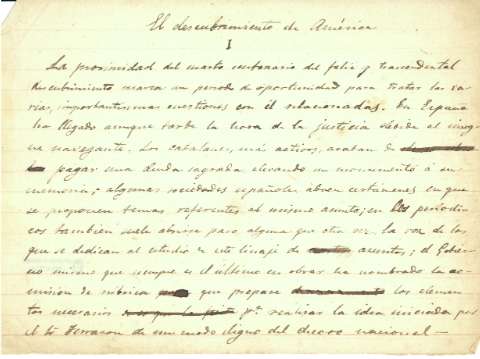 El descubrimiento de América
I
La proximidad del cuarto centenario del feliz y trascendental
descubrimiento marca un periodo de oportunidad para tratar las va-
rias, importantísimas cuestiones con él relacionadas. En España
ha llegado aunque tarde la hora de la justicia debida al insig-
ne navegante. Los catalanes, más activos, acaban de
pagar una deuda sagrada elevando un monumento á su
memoria; algunas sociedades españolas abren certámenes en que
se proponen temas referentes al mismo asunto; en los periódi-
cos también suele abrirse paso alguna que otra vez, la voz de los
que se dedican al estudio de este linaje de asuntos; el Gobier-
no mismo que siempre es el último en obrar ha nombrado la co-
misión de rúbrica que prepare los elemen-
tos necesarios pª. realizar la idea iniciada por
el Sr Ferrazon de un modo digno del decoro nacional —